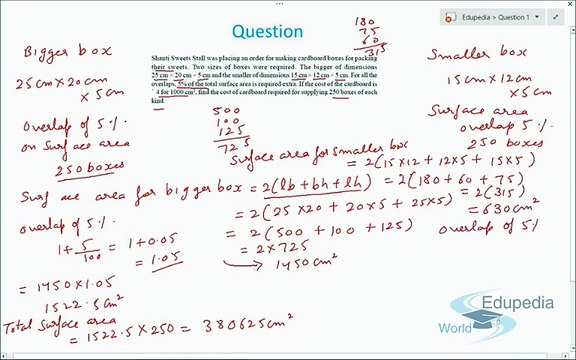 Edupedia > Question 1
Question
180
75
60
315
Shanti Sweets Stall was placing an order for making cardboard boxes for packing
their sweets. Two sizes of boxes were required. The bigger of dimensions
25 cm × 20 cm × 5 cm and the smaller of dimensions 15 cm × 12 cm × 5 cm. For all the
overlaps, 5% of the total surface area is required extra. If the cost of the cardboard is
4 for 1000 cm², find the cost of cardboard required for supplying 250 boxes of each
kind.
Bigger box
25cm×20cm
×5cm
overlap of 5%
on surface area
250 boxes
500
100
125
725
Smaller box
15cm×12cm
×5cm
Surface area
overlap 5%
250 boxes
Surface area for smaller box
= 2(15×12+12×5+15×5)
= 2(180+60+75)
= 2(315)
= 630cm²
overlap of 5%
Surface area for bigger box = 2(lb+bh+lh)
= 2(25×20+20×5+25×5)
= 2(500+100+125)
= 2×725
1450cm²
overlap of 5%
1+5/100 = 1+0.05
= 1.05
= 1450×1.05
1522.5cm²
Total Surface area
= 1522.5×250 = 380625cm²
Edupedia
World